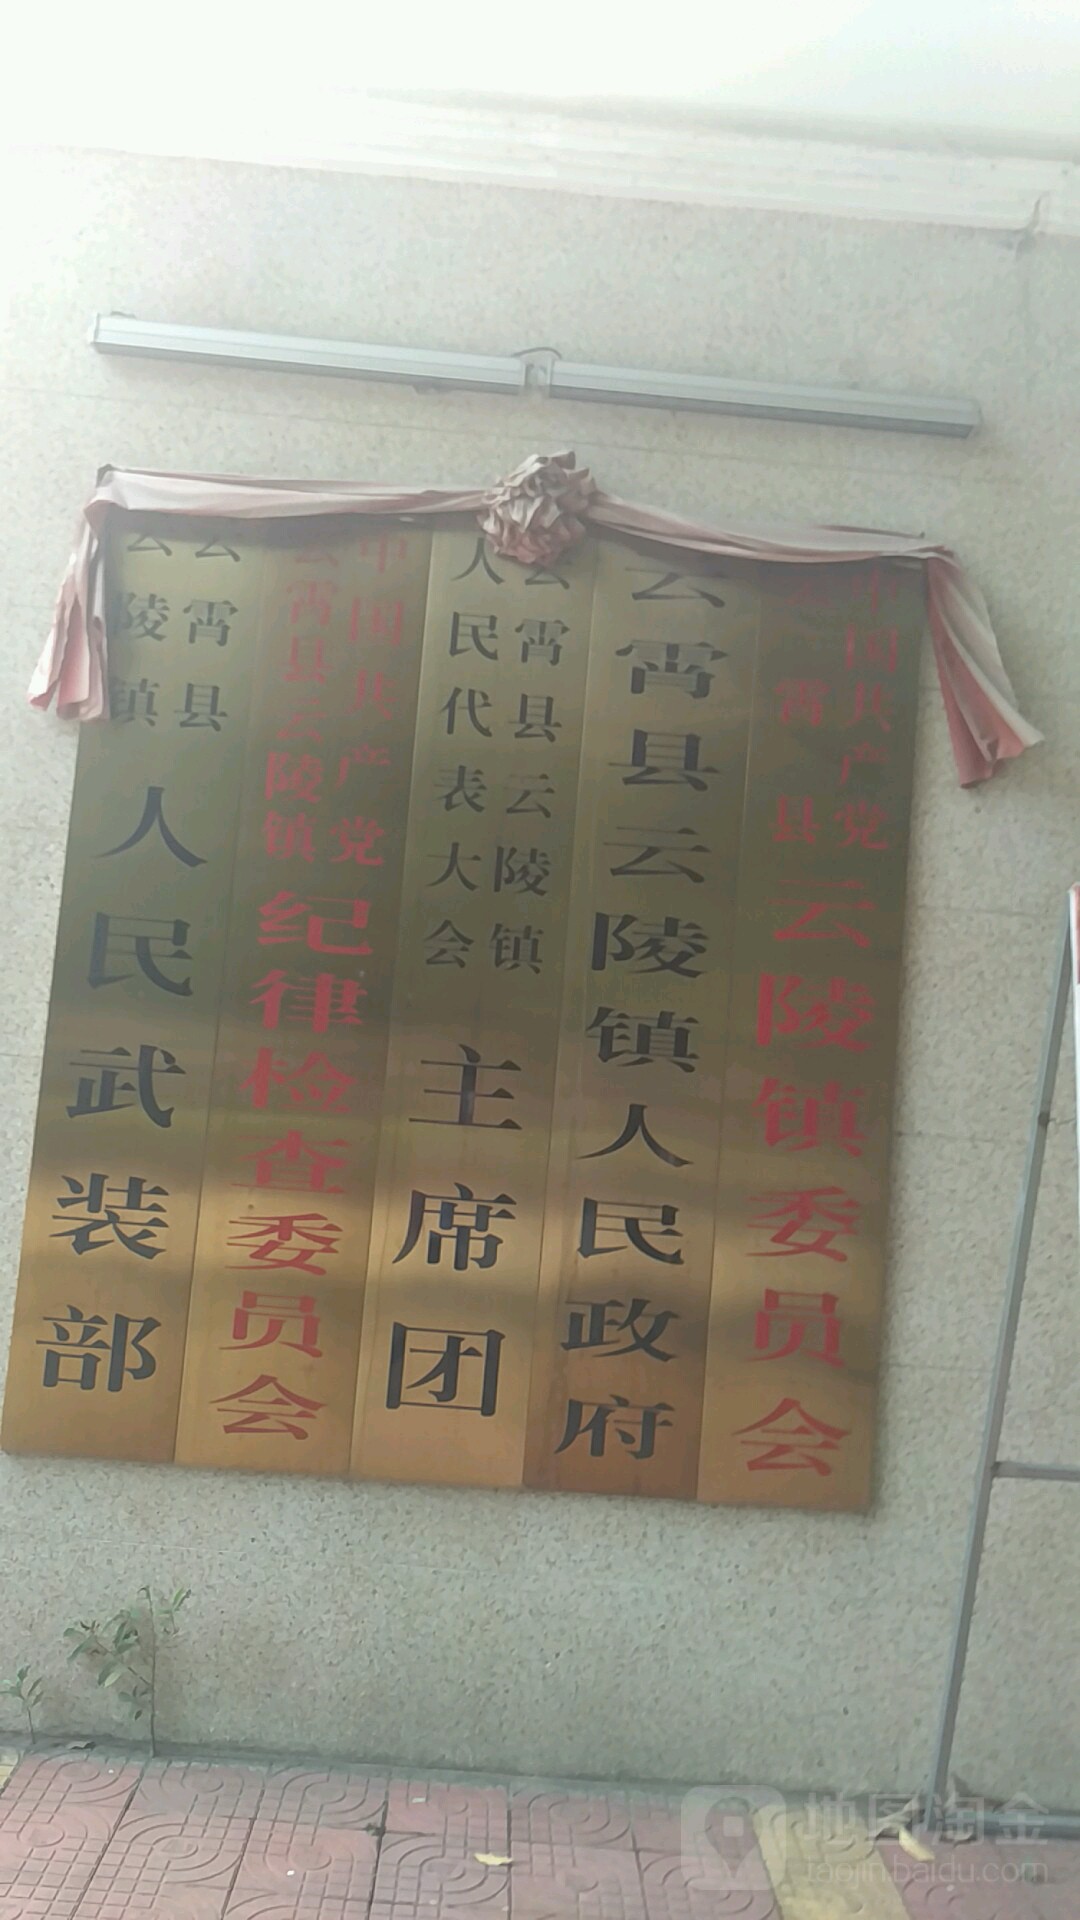 中国共产党
云霄县
云陵镇委员会
云霄县云陵镇人民政府
云霄县云陵镇
人民代表大会
主席团
中国共产党
云霄县云陵镇
纪律检查委员会
云霄县
云陵镇
人民武装部
地图淘金
taojin.baidu.com